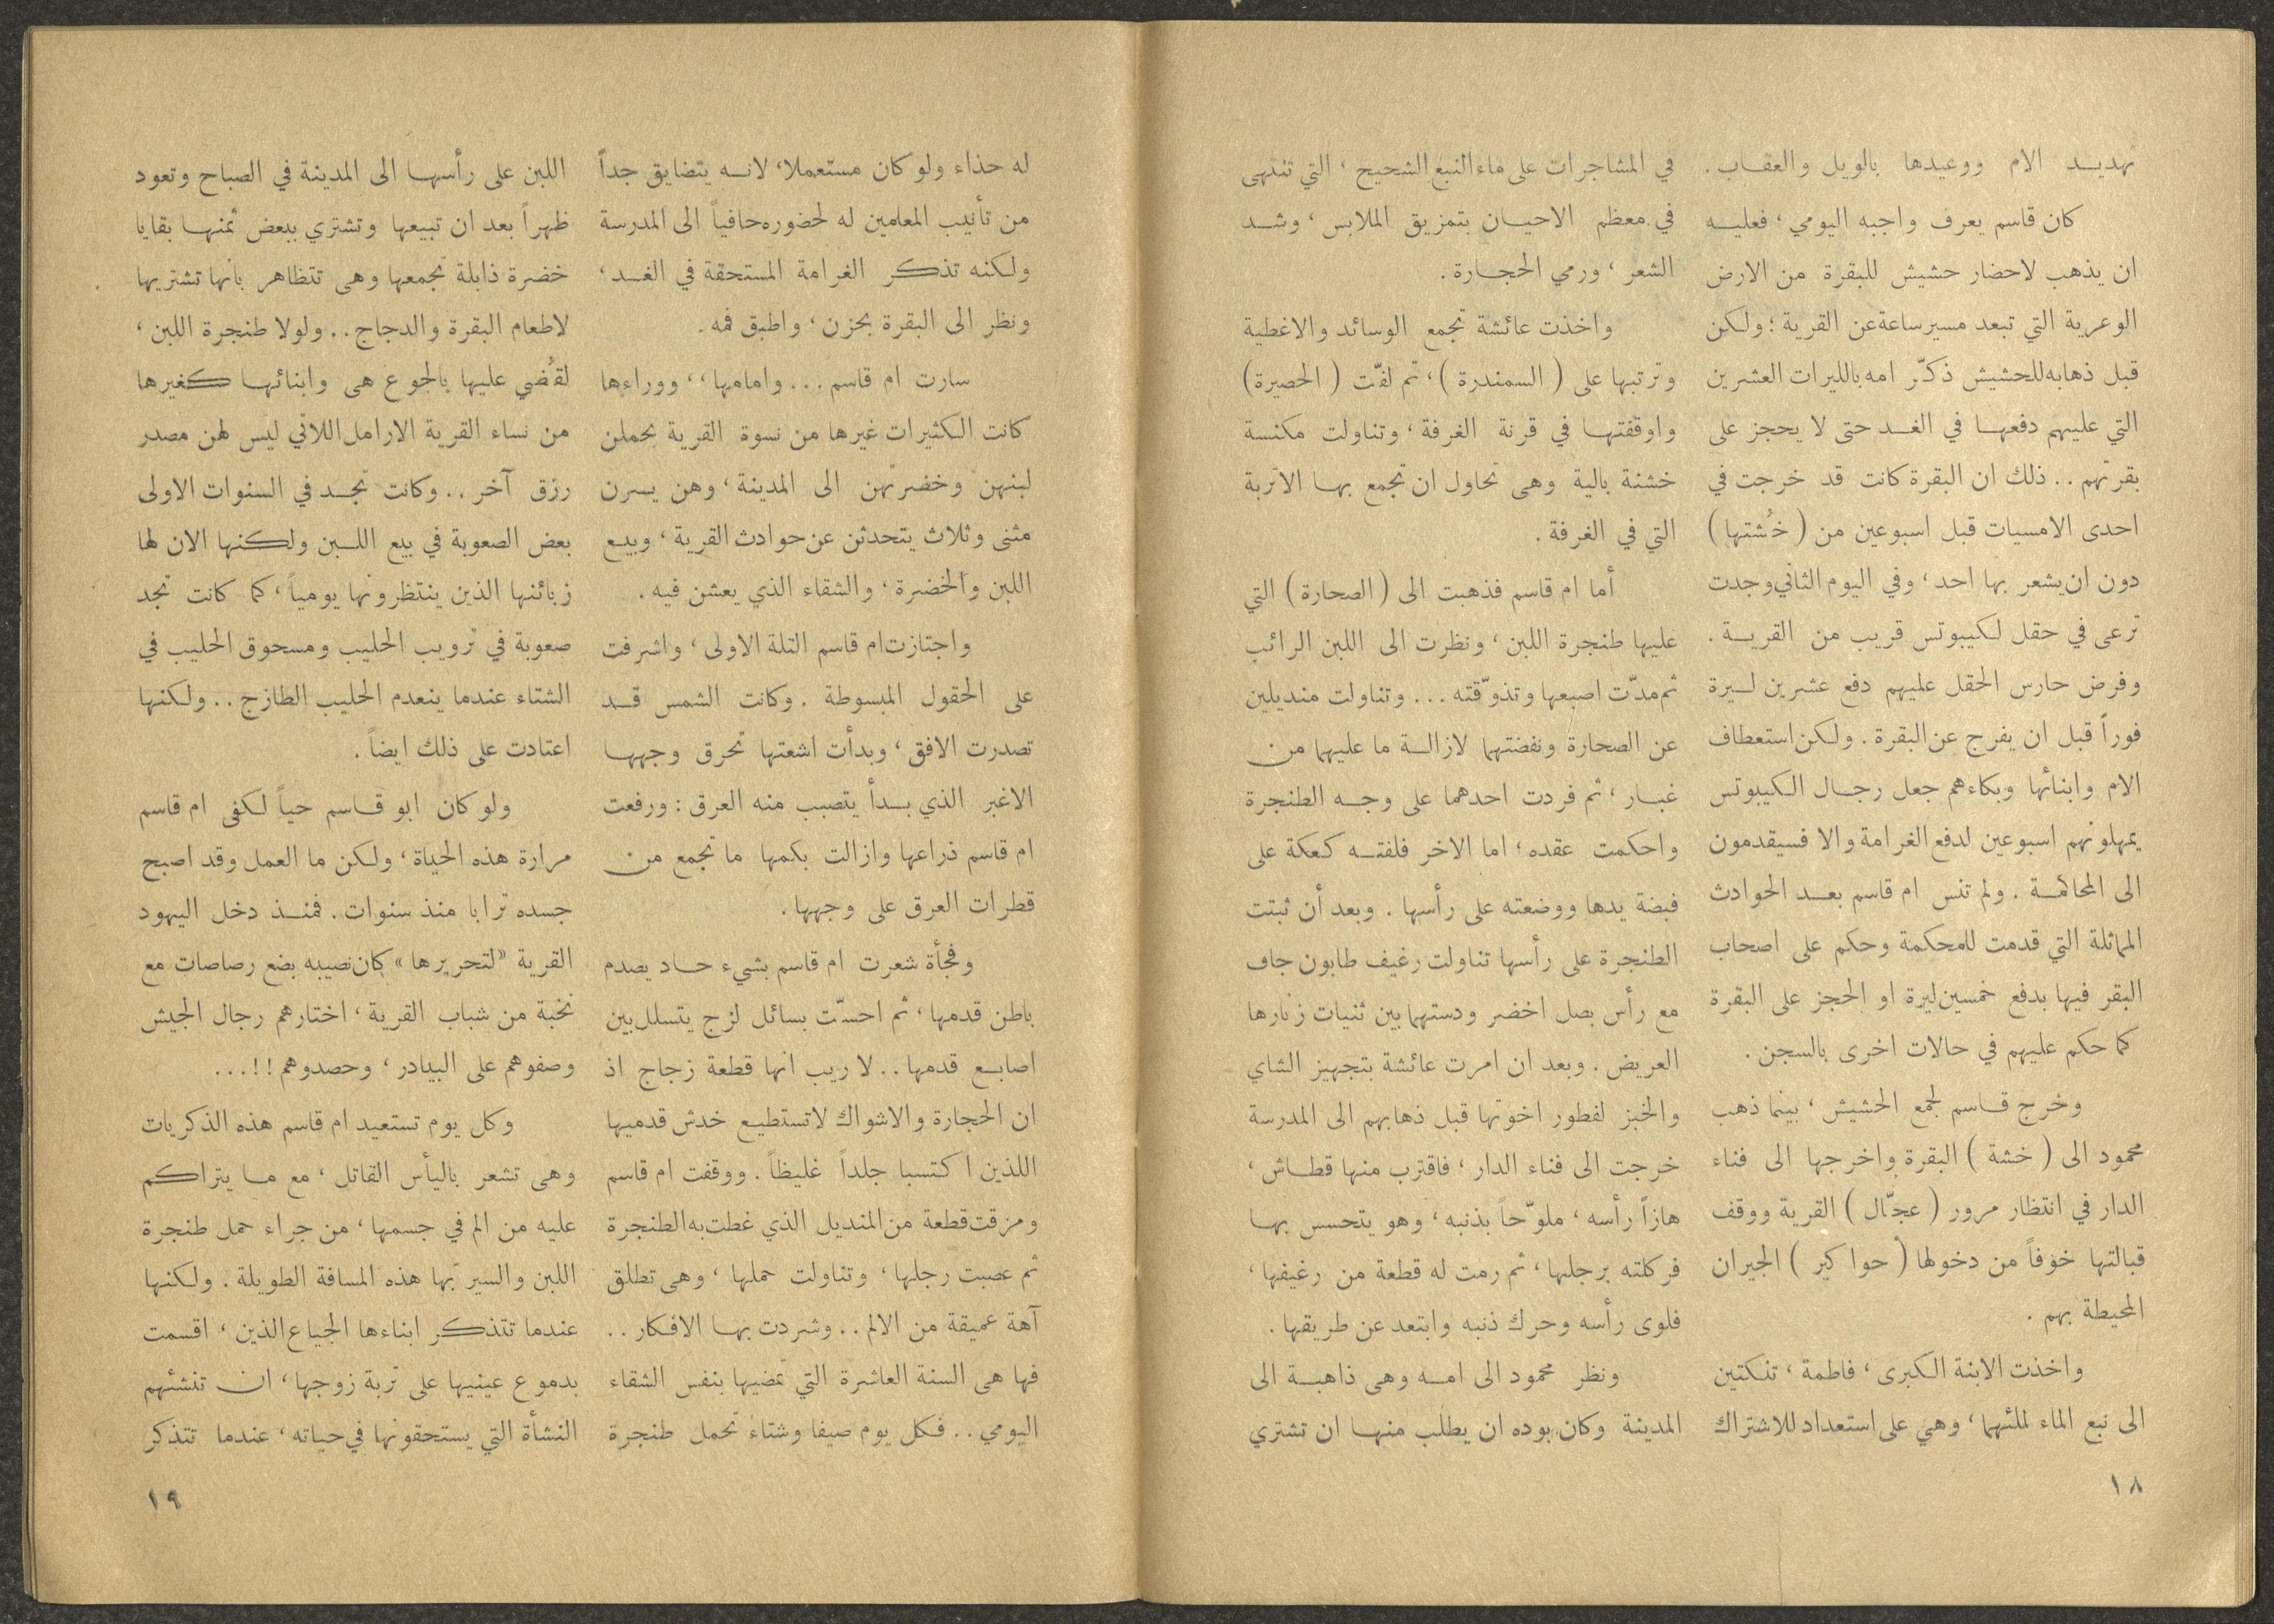 تهديد الام ووعيدها بالويل والعقاب .
كان قاسم يعرف واجبه اليومي ، فعليه
ان يذهب لاحضار حشيش للبقرة من الارض
الوعرية التي تبعد مسير ساعة عن القرية ؛ ولكن
قبل ذهابه للحشيش ذكّر امه بالليرات العشرين
التي عليهم دفعها في الغد حتى لا يحجز على
بقرتهم .. ذلك ان البقرة كانت قد خرجت في
احدى الامسيات قبل اسبوعين من ( خُشتها )
دون ان يشعر بها احد ، وفي اليوم الثاني وجدت
ترعى في حقل لكيبوتس قريب من القرية .
وفرض حارس الحقل عليهم دفع عشرين ليرة
فوراً قبل ان يفرج عن البقرة . ولكن استعطاف
الام وابنائها وبكاءهم جعل رجال الكيبوتس
يمهلونهم اسبوعين لدفع الغرامة والا فسيقدمون
الى المحاكمة . ولم تنس ام قاسم بعد الحوادث
المماثلة التي قدمت للمحكمة وحكم على اصحاب
البقر فيها بدفع خمسين ليرة او الحجز على البقرة
كما حكم عليهم في حالات اخرى بالسجن .
وخرج قاسم لجمع الحشيش ، بينما ذهب
محمود الى ( خشة ) البقرة واخرجها الى فناء
الدار في انتظار مرور ( عجّال ) القرية ووقف
قبالتها خوفاً من دخولها ( حواكير ) الجيران
المحيطة بهم .
واخذت الابنة الكبرى ، فاطمة ، تنكتين
الى نبع الماء لملئهما ، وهي على استعداد للاشتراك
١٨
في المشاجرات على ماء النبع الشحيح ، التي تنتهي
في معظم الاحيان بتمزيق الملابس ، وشد
الشعر ، ورمي الحجارة .
واخذت عائشة تجمع الوسائد والاغطية
وترتبها على ( السمندرة ) ، ثم لفّت ( الحصيرة )
واوقفتها في قرنة الغرفة ، وتناولت مكنسة
خشنة بالية وهي تحاول ان تجمع بها الاتربة
التي في الغرفة .
أما ام قاسم فذهبت الى ( الصحارة ) التي
عليها طنجرة اللبن ، ونظرت الى اللبن الرائب
ثم مدّت اصبعها وتذوّقته ... وتناولت منديلين
عن الصحارة ونفضتهما لازالة ما عليهما من
غبار ، ثم فردت احدهما على وجه الطنجرة
واحكمت عقده ؛ اما الاخر فلفته كعكة على
قبضة يدها ووضعته على رأسها . وبعد أن ثبتت
الطنجرة على رأسها تناولت رغيف طابون جاف
مع رأس بصل اخضر ودستهما بين ثنيات زنارها
العريض . وبعد ان امرت عائشة بتجهيز الشاي
والخبز لفطور اخوتها قبل ذهابهم الى المدرسة
خرجت الى فناء الدار ، فاقترب منها قطاش ،
هازاً رأسه ، ملوّحاً بذنبه ، وهو يتحسس بها
فركلته برجلها ، ثم رمت له قطعة من رغيفها ،
فلوى رأسه وحرك ذنبه وابتعد عن طريقها .
ونظر محمود الى امه وهي ذاهبة الى
المدينة وكان بوده ان يطلب منها ان تشتري
له حذاء ولو كان مستعملا ، لانه يتضايق جداً
من تأنيب المعلمين له لحضوره حافياً الى المدرسة
ولكنه تذكر الغرامة المستحقة في الغد ،
ونظر الى البقرة بحزن ، واطبق فمه .
سارت ام قاسم ... وامامها ،، ووراءها
كانت الكثيرات غيرها من نسوة القرية يحملن
لبنهن وخضرتهن الى المدينة ، وهن يسرن
مثنى وثلاث يتحدثن عن حوادث القرية ، وبيع
اللبن والخضرة ، والشقاء الذي يعشن فيه .
واجتازت ام قاسم التلة الاولى ، واشرفت
على الحقول المبسوطة . وكانت الشمس قد
تصدرت الافق ، وبدأت اشعتها تحرق وجهها
الاغبر الذي بدأ يتصبب منه العرق : ورفعت
ام قاسم ذراعها وازالت بكمها ما تجمع من
قطرات العرق على وجهها .
وفجأة شعرت ام قاسم بشيء حاد يصدم
باطن قدمها ، ثم احسّت بسائل لزج يتسلل بين
اصابع قدمها .. لا ريب انها قطعة زجاج اذ
ان الحجارة والاشواك لا تستطيع خدش قدميها
اللذين اكتسبا جلداً غليظاً . ووقفت ام قاسم
ومزقت قطعة من المنديل الذي غطت به الطنجرة
ثم عصبت رجلها ، وتناولت حملها ، وهي تطلق
آهة عميقة من الالم .. وشردت بها الافكار ..
فها هي السنة العاشرة التي تمضيها بنفس الشقاء
اليومي .. فكل يوم صيفا وشتاءً تحمل طنجرة
اللبن على رأسها الى المدينة في الصباح وتعود
ظهراً بعد ان تبيعها وتشتري ببعض ثمنها بقايا
خضرة ذابلة تجمعها وهي تتظاهر بانها تشتريها
لاطعام البقرة والدجاج .. ولولا طنجرة اللبن ،
لقُضي عليها بالجوع هي وابنائها كغيرها
من نساء القرية الارامل اللاتي ليس لهن مصدر
رزق آخر .. وكانت تجد في السنوات الاولى
بعض الصعوبة في بيع اللبن ولكنها الان لها
زبائنها الذين ينتظرونها يومياً ، كما كانت تجد
صعوبة في ترويب الحليب ومسحوق الحليب في
الشتاء عندما ينعدم الحليب الطازج .. ولكنها
اعتادت على ذلك ايضاً .
ولو كان ابو قاسم حياً لكفى ام قاسم
مرارة هذه الحياة ، ولكن ما العمل وقد اصبح
جسده ترابا منذ سنوات . فمنذ دخل اليهود
القرية « لتحريرها » كان نصيبه بضع رصاصات مع
نخبة من شباب القرية ، اختارهم رجال الجيش
وصفوهم على البيادر ، وحصدوهم !! ...
وكل يوم تستعيد ام قاسم هذه الذكريات
وهي تشعر باليأس القاتل ، مع ما يتراكم
عليه من الم في جسمها ، من جراء حمل طنجرة
اللبن والسير بها هذه المسافة الطويلة . ولكنها
عندما تتذكر ابناءها الجياع الذين ، اقسمت
بدموع عينيها على تربة زوجها ، ان تنشئهم
النشأة التي يستحقونها في حياته ، عندما تتذكر
١٩